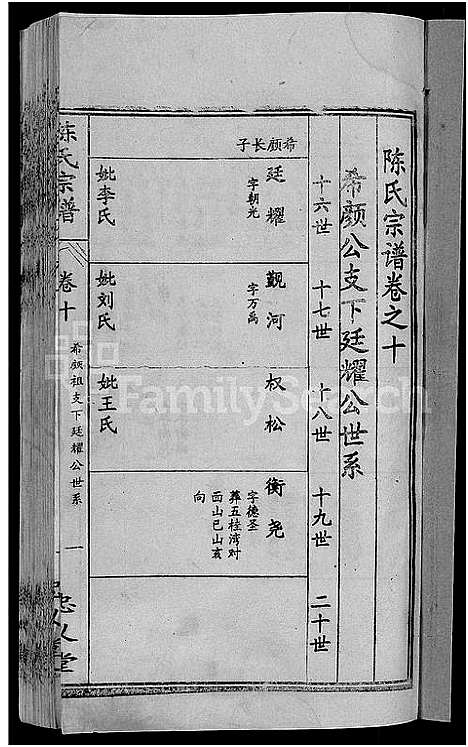 陈氏宗谱卷之十
希颜公支下廷耀公世系
十六世
十七世
十八世
十九世
二十世
希颜长子
廷耀
字朝光
妣李氏
觐河
字万禹
妣刘氏
权松
妣王氏
衡尧
字德圣
葬五桂湾对
面山巳山亥
向
陈氏宗谱
卷十
希颜祖支下廷耀公世系
一
堂
FamilySearch